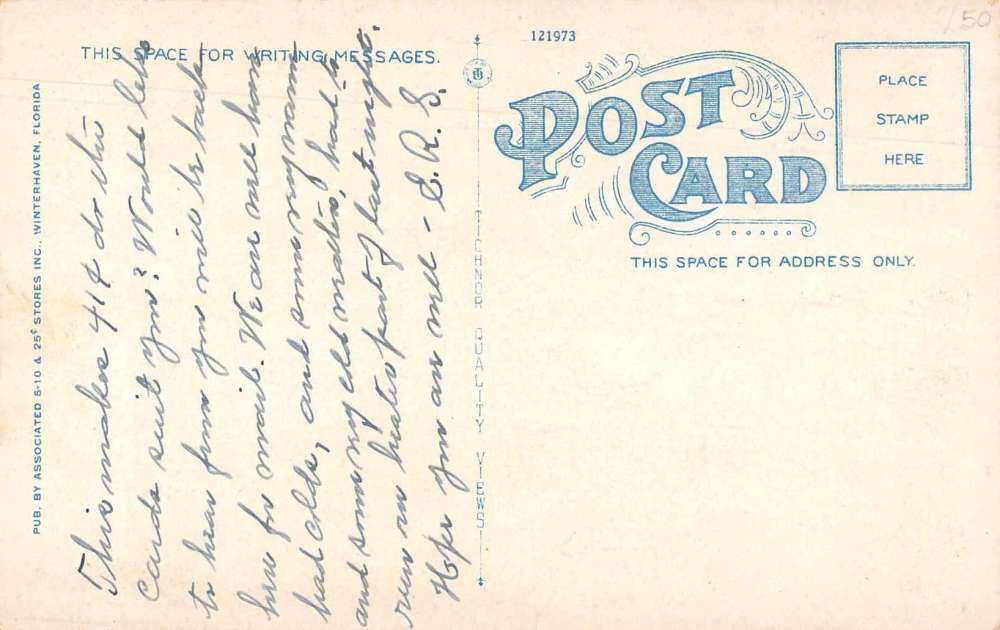 THIS SPACE FOR WRITING MESSAGES.
This makes 41¢ do the
cards suit you? Would like
to hear from you will be back
here for mail. We are well
bad colds, and some very warm
and some very cold weather, had to
run heater part of last night.
Hope you are well - E. R. S.
PUB. BY ASSOCIATED 5-10 & 25¢ STORES INC., WINTERHAVEN, FLORIDA
TICHNOR QUALITY VIEWS
121973
POST CARD
PLACE
STAMP
HERE
THIS SPACE FOR ADDRESS ONLY.
150